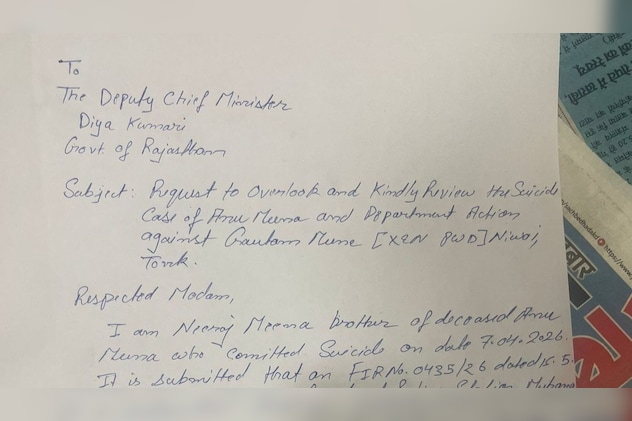 To
The Deputy Chief Minister
Diya Kumari
Govt. of Rajasthan
Subject: Request to Overlook and Kindly Review the Suicide
Case of Anu Meena and Department Action
against Gautam Meena [XEN PWD] Niwai,
Tonk.
Respected Madam,
I am Neeraj Meena brother of deceased Anu
Meena who comitted Suicide on date 7.04.2026.
It is submitted that an FIR No. 0435/26 dated